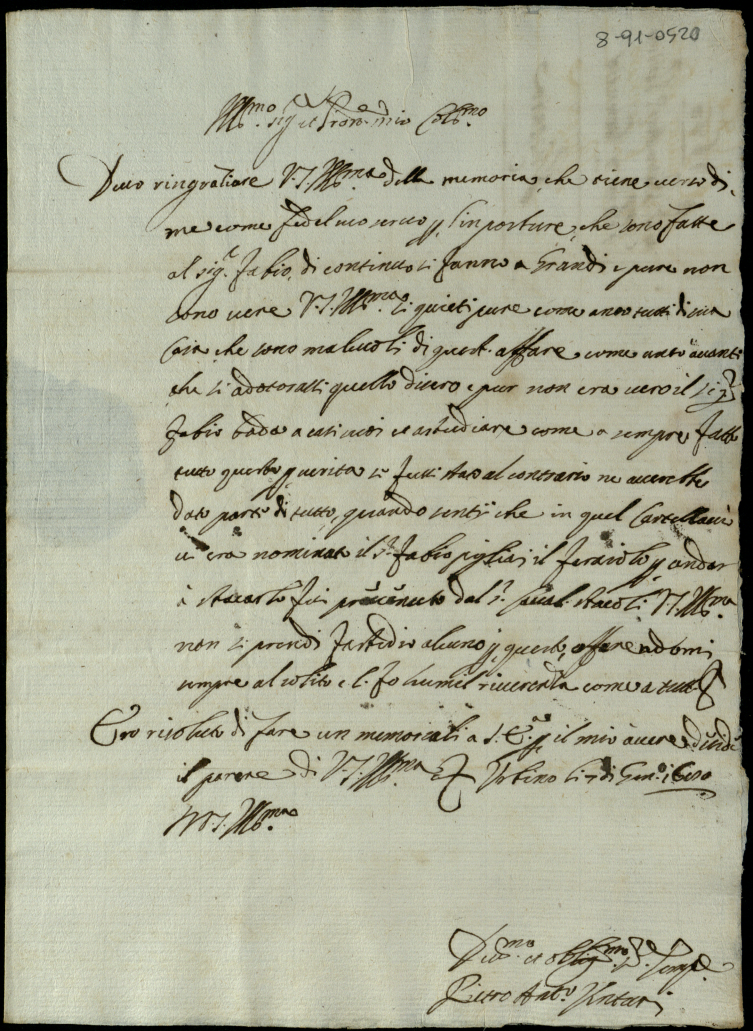 8-91-0520
Ill.mo sig.r et Pron mio Col.mo
Devo ringratiare V.S. Ill.ma della memoria, che tiene verso di
me come fedel suo servo, p l'inposture, che sono fatte
al sig.r Fabio, di continuo si fanno a Grandi e pure non
sono vere V.S. Ill.ma si quieti pure come anco tutti di sua
Casa che sono malevoli di quest. affare come anco avanti
che si adotorassi quello disero e pur non era vero il Sig.r
Fabio bada a casi suoi et a studiare come a sempre fatto
tutto questo p verita si fussi stato al contrario ne averette
dato parte di tutto, quando sentij che in quel Cartellacio
vi era nominato il S.r Fabio pigliai il feraiolo p andar
à stacarlo fui prevenuto dal S.r Caval. Staccoli V.S. Ill.ma
non si prendi fastidio alcuno p questo affare ed omi
sempre al solito e li fo humil riverenza come a tutti
Ero risoluto di fare un memoriali a S. E. p il mio avere
il parere di V.S. Ill.ma Et Urbino li 7 di Gen.o
Di V.S. Ill.ma
Dev.mo et oblig.mo Ser.
Pietro Ant.o